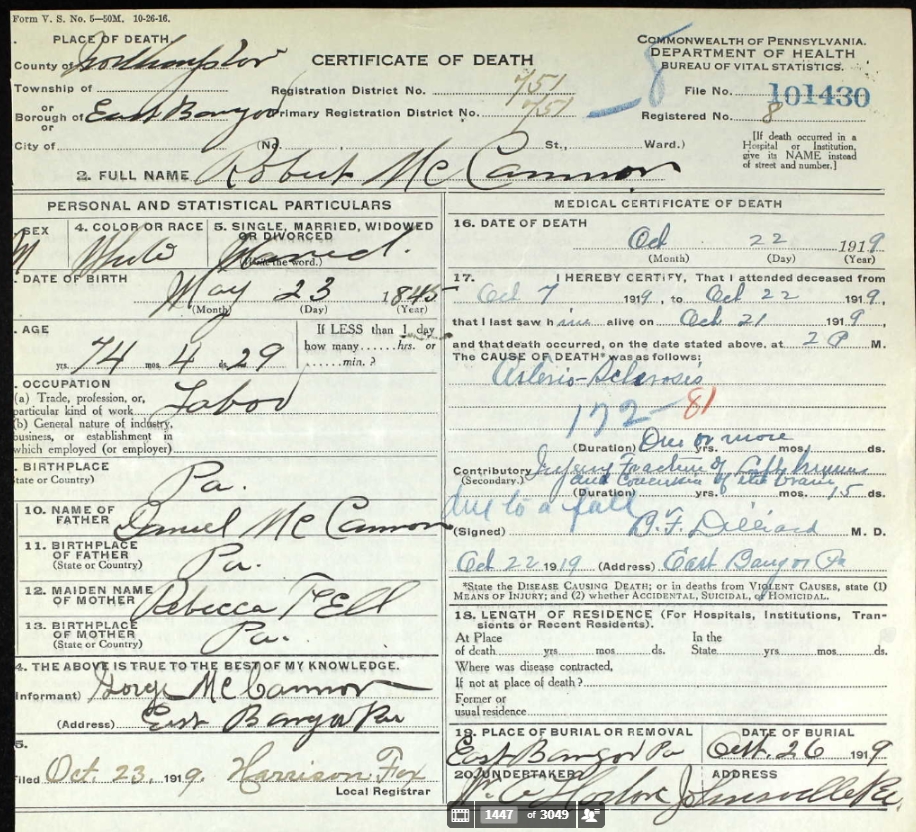 Form V. S. No. 5—50M. 10-26-16.
PLACE OF DEATH
County of Northampton
Township of
or
Borough of East Bangor
or
City of
CERTIFICATE OF DEATH
Registration District No. 751
Primary Registration District No. 751
(No. St., Ward.)
COMMONWEALTH OF PENNSYLVANIA.
DEPARTMENT OF HEALTH
BUREAU OF VITAL STATISTICS.
File No. 101430
Registered No. 8
[If death occurred in a
Hospital or Institution,
give its NAME instead
of street and number.]
2. FULL NAME Robert McCammon
PERSONAL AND STATISTICAL PARTICULARS
SEX
M
4. COLOR OR RACE
White
5. SINGLE, MARRIED, WIDOWED
OR DIVORCED
(Write the word.)
Married.
DATE OF BIRTH
May 23 1845
(Month) (Day) (Year)
AGE
74 yrs. 4 mos. 29 ds.
If LESS than 1 day
how many......hrs. or
......min.?
OCCUPATION
(a) Trade, profession, or
particular kind of work Labor
(b) General nature of industry,
business, or establishment in
which employed (or employer)
BIRTHPLACE
State or Country) Pa.
10. NAME OF
FATHER Daniel McCammon
11. BIRTHPLACE
OF FATHER
(State or Country) Pa.
12. MAIDEN NAME
OF MOTHER Rebecca
13. BIRTHPLACE
OF MOTHER
(State or Country) Pa.
4. THE ABOVE IS TRUE TO THE BEST OF MY KNOWLEDGE.
Informant) George McCammon
(Address) East Bangor Pa
5.
Filed Oct. 23, 1919. Harrison
Local Registrar
MEDICAL CERTIFICATE OF DEATH
16. DATE OF DEATH
Oct 22 1919
(Month) (Day) (Year)
17. I HEREBY CERTIFY, That I attended deceased from
Oct 7 1919, to Oct 22 1919,
that I last saw him alive on Oct 21 1919
and that death occurred, on the date stated above, at 2 P M.
The CAUSE OF DEATH* was as follows:
Arterio-Sclerosis
172- 81
(Duration) One or more yrs. mos. ds.
Contributory Injury Fracture of Left
(Secondary.) and Concussion of the brain
(Duration) yrs. mos. 15 ds.
due to a fall
(Signed) B.F. Dilliard M. D.
Oct 22 1919 (Address) East Bangor Pa
*State the DISEASE CAUSING DEATH; or in deaths from VIOLENT CAUSES, state (1)
MEANS OF INJURY; and (2) whether ACCIDENTAL, SUICIDAL, or HOMICIDAL.
18. LENGTH OF RESIDENCE (For Hospitals, Institutions, Tran-
sients or Recent Residents).
At Place In the
of death yrs mos. ds. State yrs mos. ds.
Where was disease contracted,
If not at place of death?
Former or
usual residence
19. PLACE OF BURIAL OR REMOVAL
East Bangor Pa
DATE OF BURIAL
Oct. 26 1919
20. UNDERTAKER
ADDRESS
Johnsonville Pa.
1447 of 3049